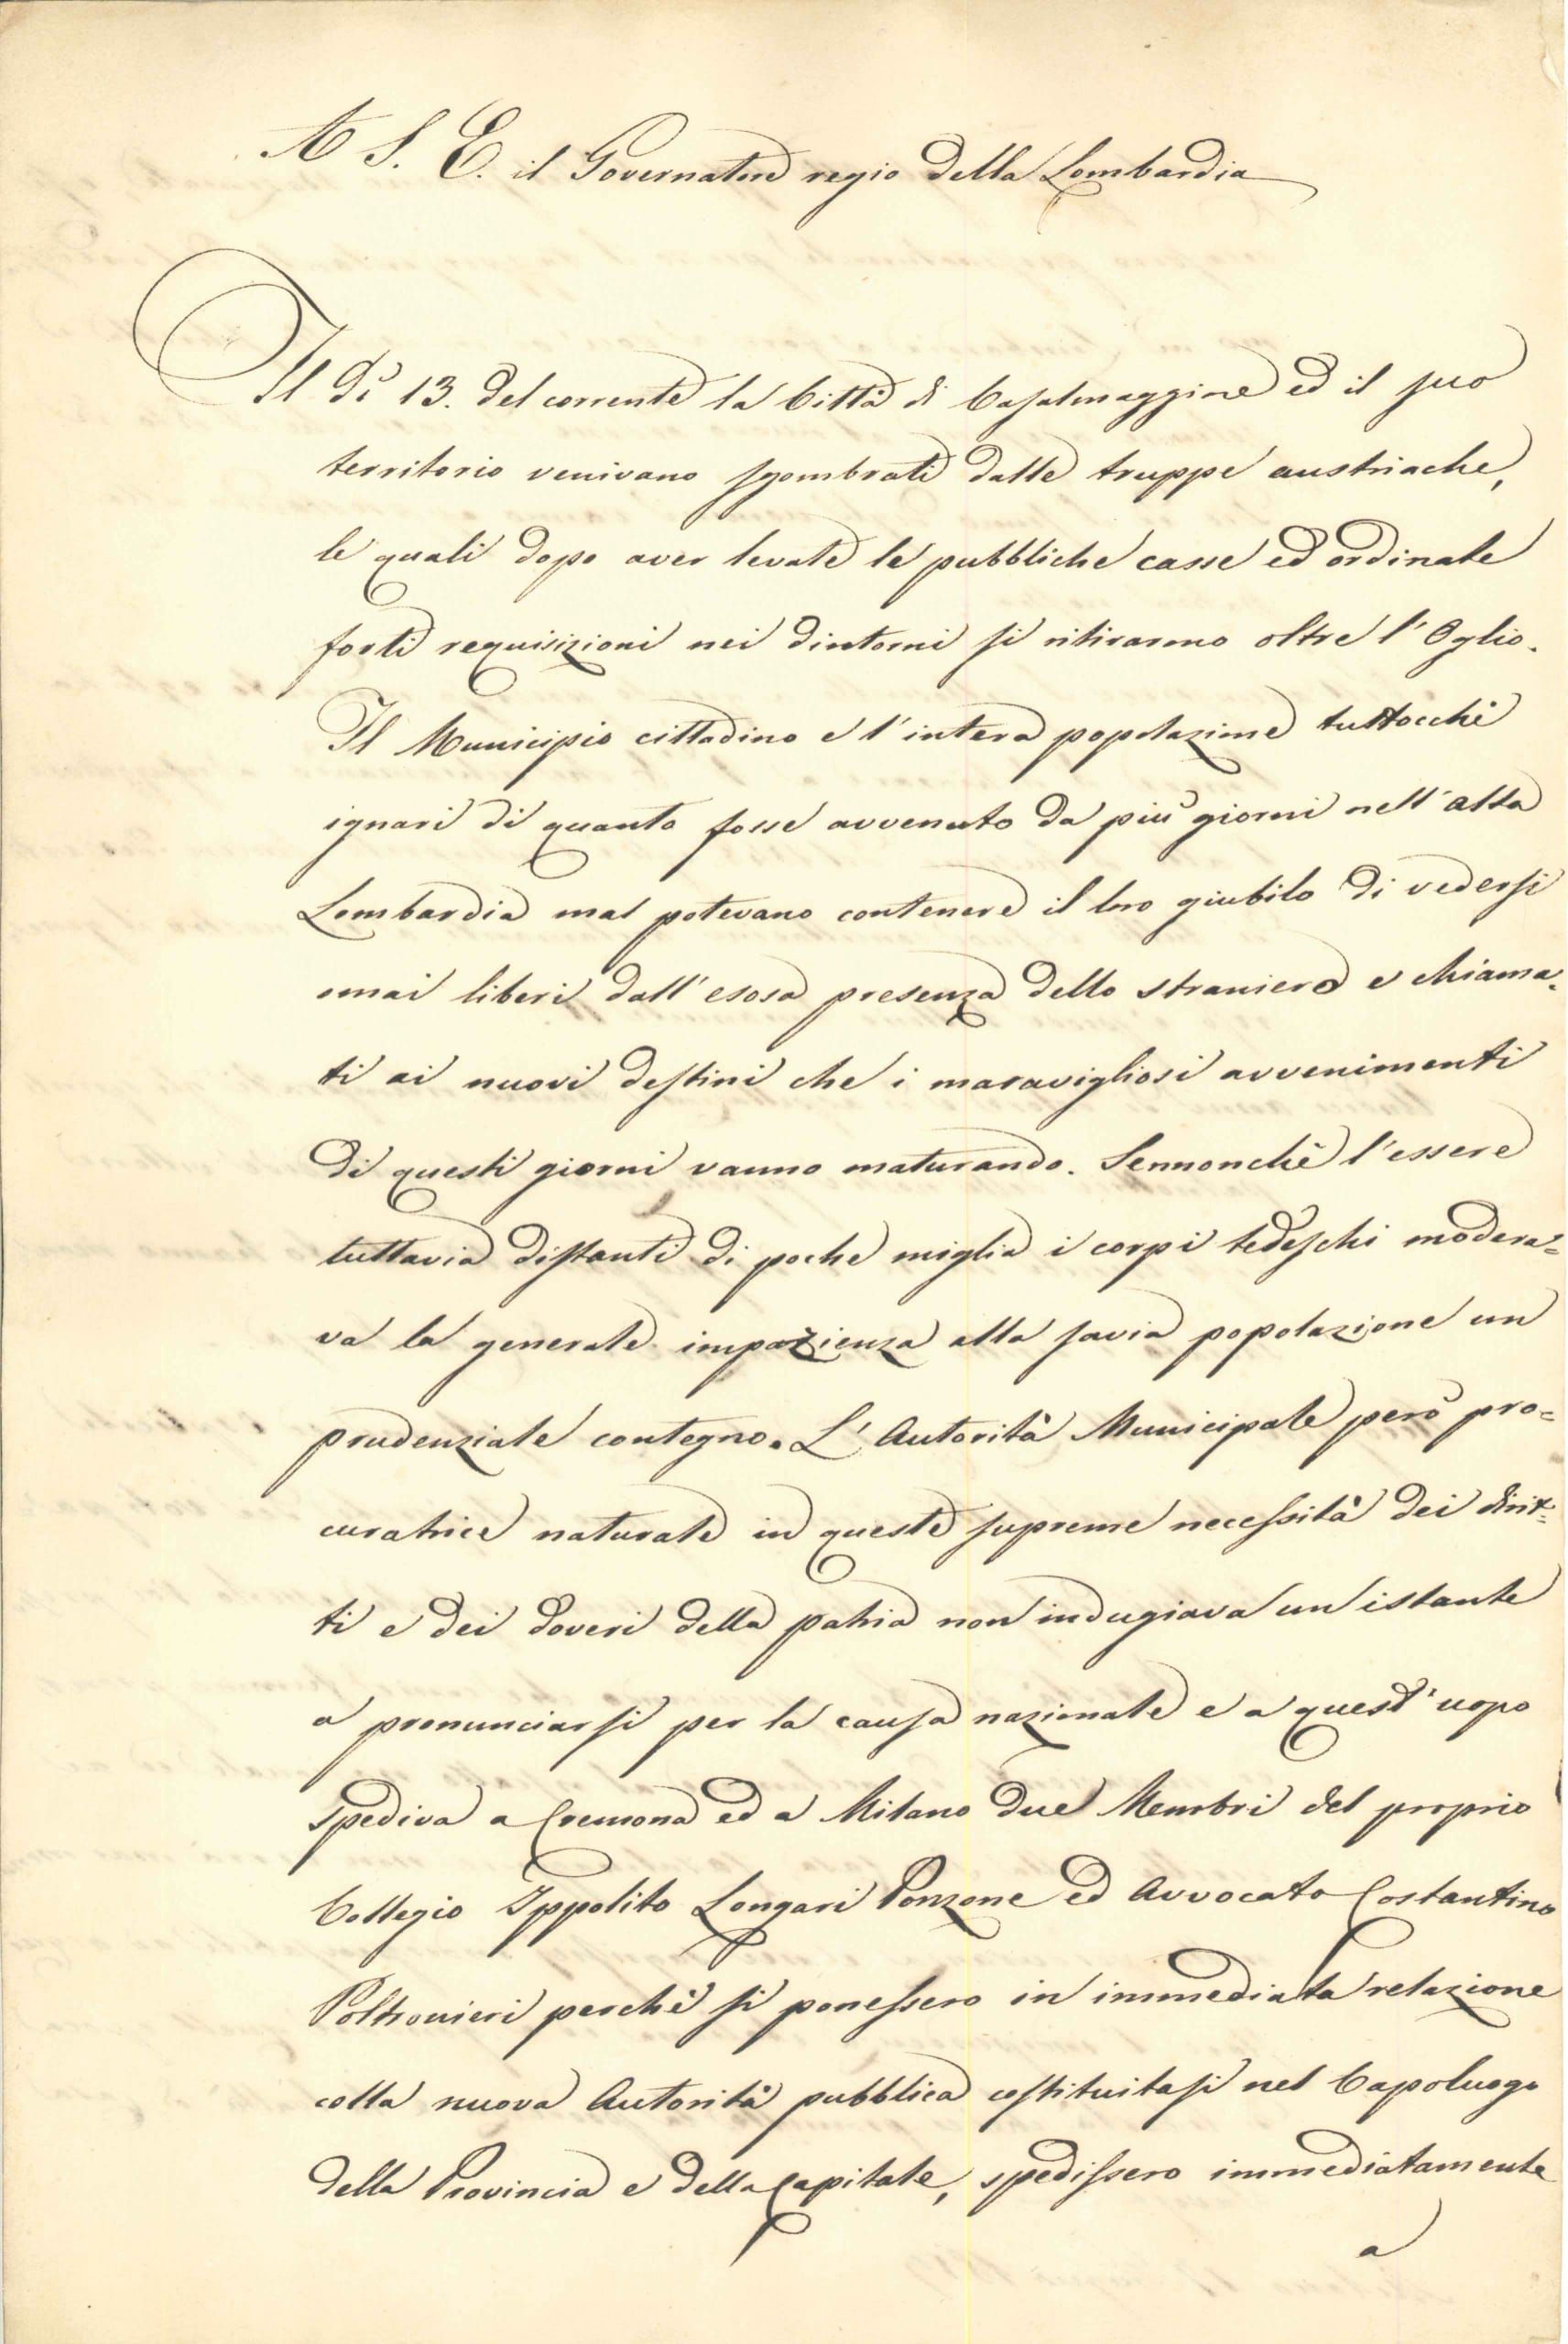 A S. E. il Governatore regio della Lombardia
Il dì 13. del corrente la Città di Casalmaggiore ed il suo
territorio venivano sgombrati dalle truppe austriache,
le quali dopo aver levate le pubbliche casse ed ordinate
forti requisizioni nei dintorni si ritirarono oltre l'Oglio.
Il Municipio cittadino e l'intera popolazione tuttocchè
ignari di quanto fosse avvenuto da più giorni nell'alta
Lombardia mal potevano contenere il loro giubilo di vedersi
omai liberi dall'esosa presenza dello straniero e chiama-
ti ai nuovi destini che i maravigliosi avvenimenti
di questi giorni vanno maturando. Sennonchè l'essere
tuttavia distanti di poche miglia i corpi tedeschi modera=
va la generale impazienza alla savia popolazione un
prudenziale contegno. L'Autorità Municipale però pro=
curatrice naturale in queste supreme necessità dei dirit=
ti e dei doveri della patria non indugiava un istante
a pronunciarsi per la causa nazionale e a quest'uopo
spediva a Cremona ed a Milano due Membri del proprio
Collegio Ippolito Longari Ponzone ed Avvocato Costantino
Poltronieri perchè si ponessero in immediata relazione
colla nuova Autorità pubblica costituitasi nel Capoluogo
della Provincia e della Capitale, spedissero immediatamente
a